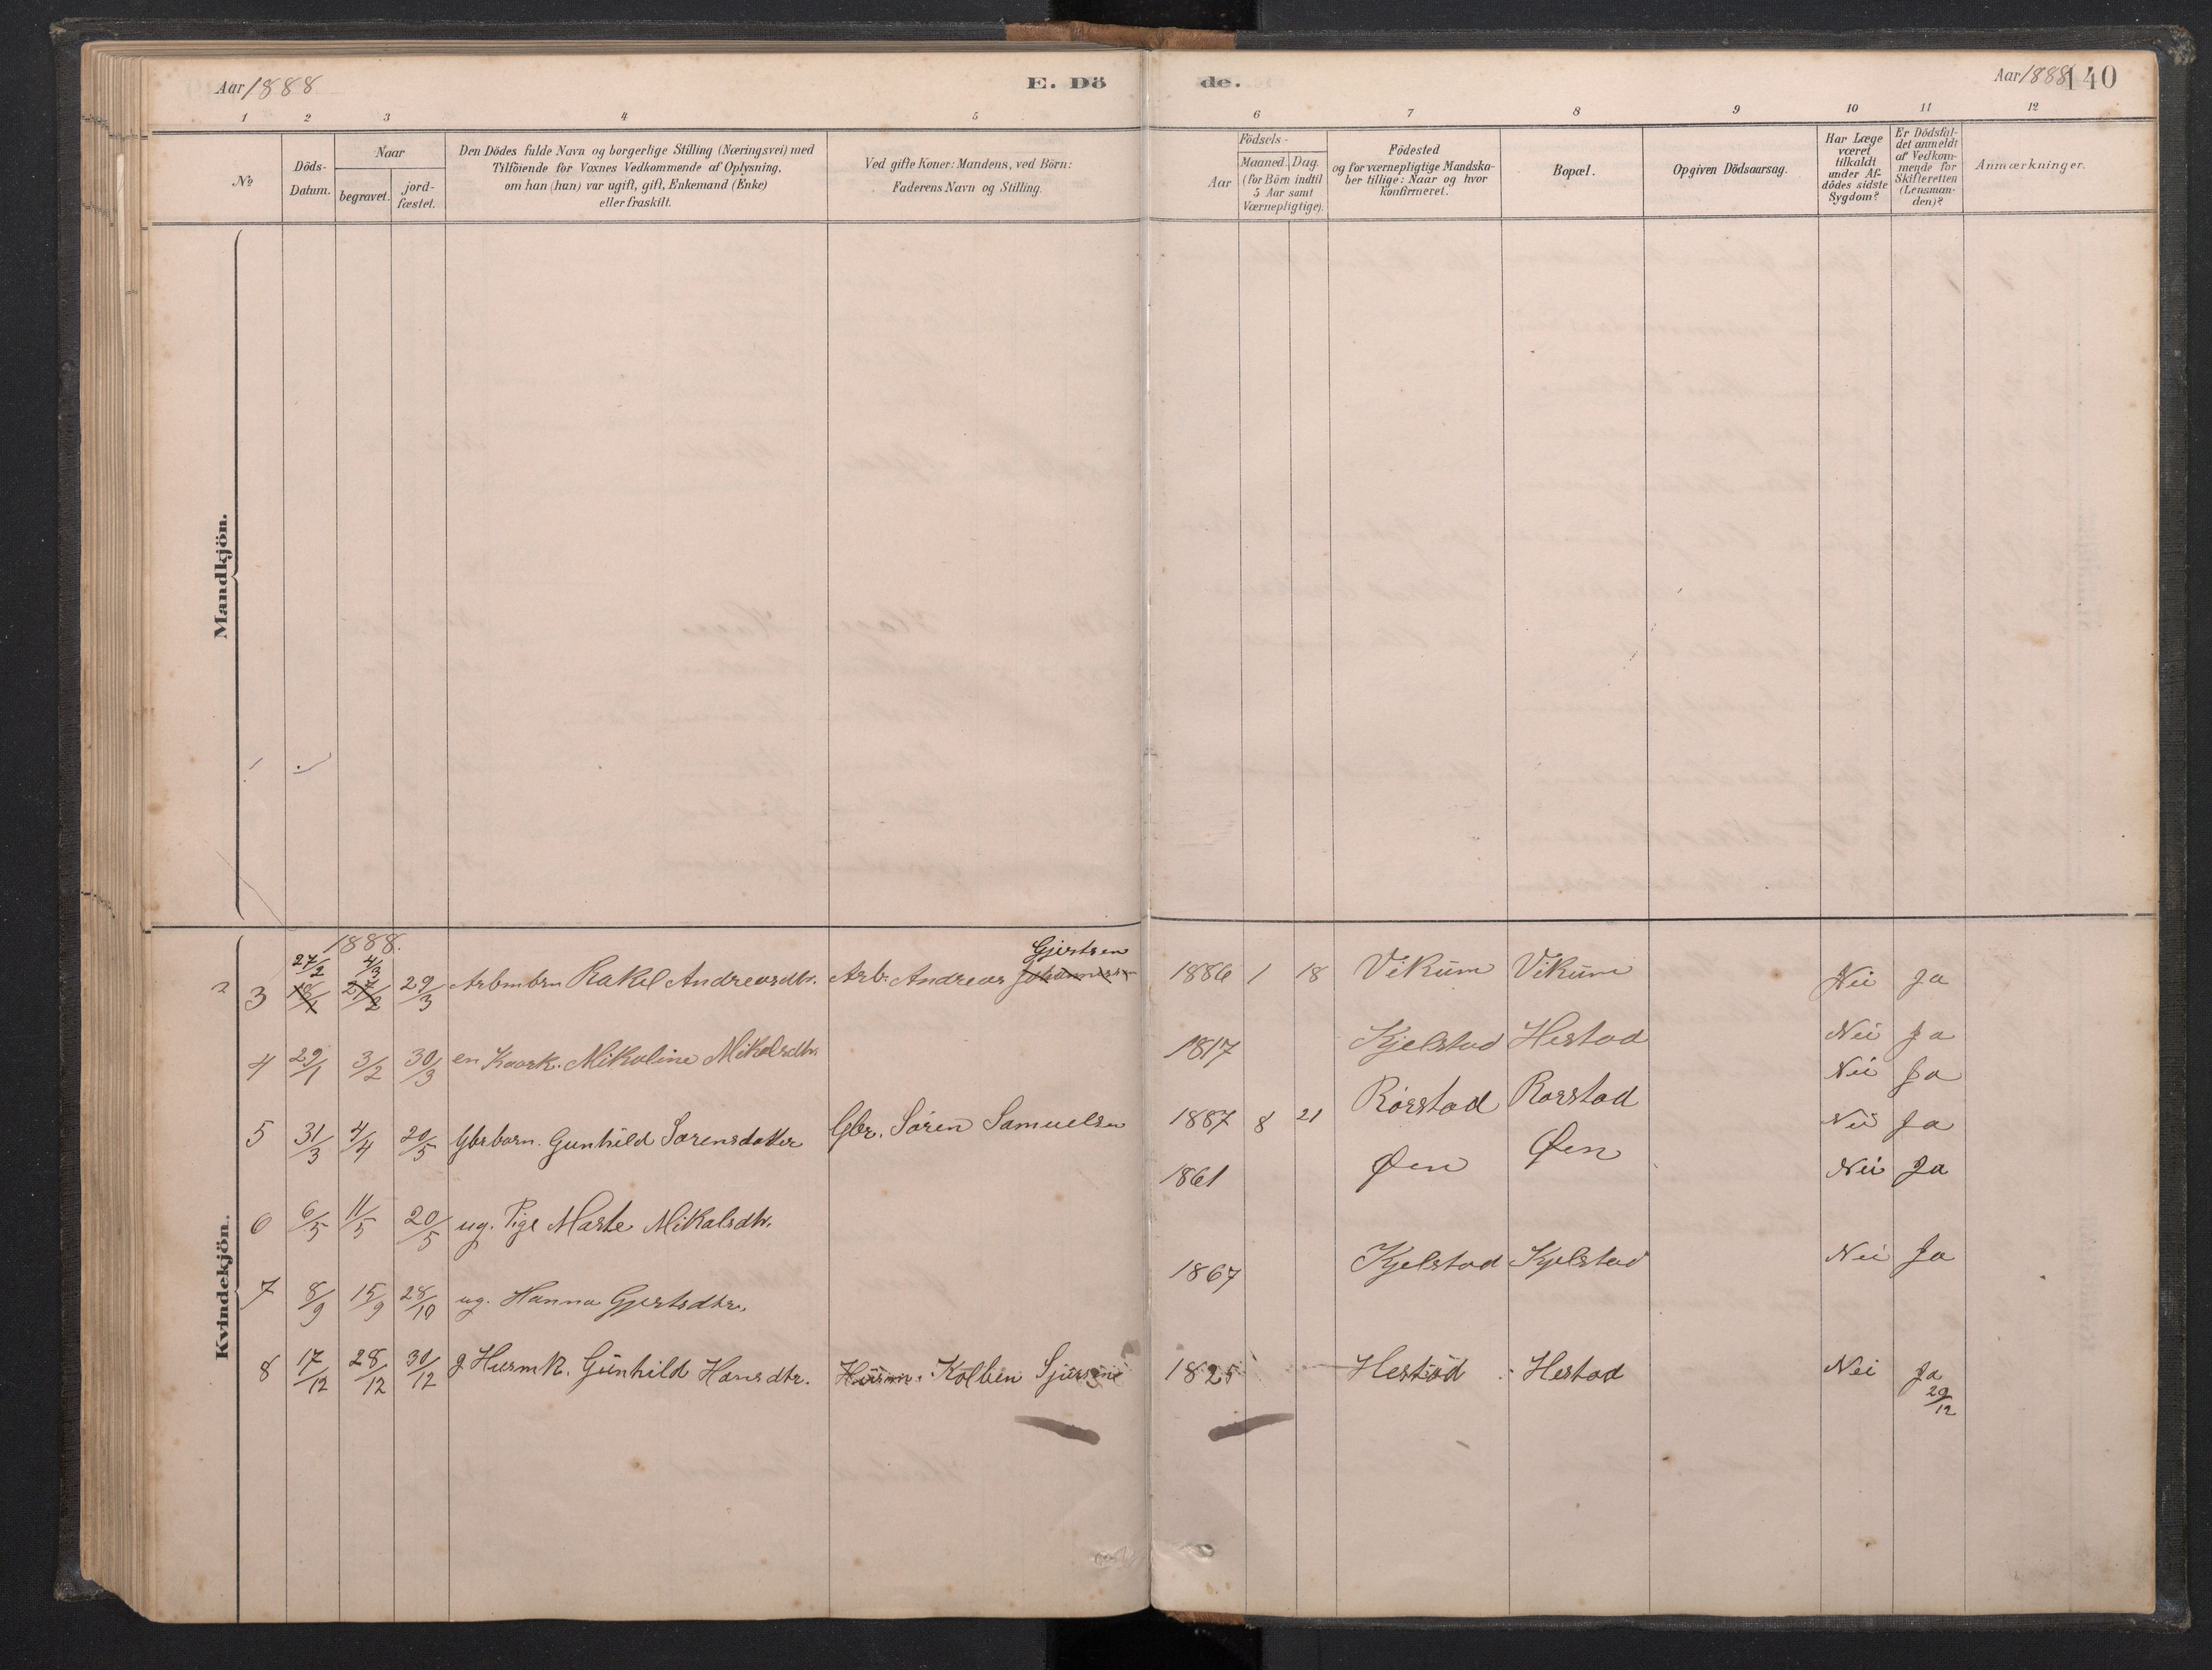 Aar 1888 E. Dö de. Aar 1888 140
1 2 3 4 5 6 7 8 9 10 11 12
No
Döds-
Datum.
Naar
begravet.
jord-
fæstet.
Den Dödes fulde Navn og borgerlige Stilling (Næringsvei) med
Tilföiende for Voxnes Vedkommende af Oplysning,
om han (hun) var ugift, gift, Enkemand (Enke)
eller fraskilt.
Ved gifte Koner: Mandens, ved Börn:
Faderens Navn og Stilling.
Födsels-
Aar
Maaned. Dag.
(for Börn indtil
5 Aar samt
Værnepligtige).
Födested
og for værnepligtige Mandska-
ber tillige: Naar og hvor
konfirmeret.
Bopæl.
Opgiven Dödsaarsag.
Har Læge
været
tilkaldt
under Af-
dödes sidste
Sygdom?
Er Dödsfal-
det anmeldt
af Vedkom-
mende for
Skifteretten
(Lensman-
den)?
Anmærkninger.
Mandkjön.
Kvindekjön.
1888.
27/2 4/3 Gjertsen
3 18/1 27/2 29/3 Arbmbrn Rakel Andreasdtr. Arb. Andreas Johannessen 1886 1 18 Vikum Vikum Nei Ja
4 29/1 3/2 30/3 en Kaark. Mikoline Mikalsdtr. 1817 Kjelstad Hestad Nei Ja
Nei Ja
5 31/3 4/4 20/5 Gbrbarn. Gunhild Sørensdatter Gbr. Søren Samuelsen 1887 8 21 Rørstad Rørstad Nei Ja
6 6/5 11/5 20/5 ug. Pige Marte Mikalsdtr. 1861 Øen Øen Nei Ja
7 8/9 15/9 28/10 ug. Hanna Gjertsdtr. 1867 Kjelstad Kjelstad Nei Ja
8 17/12 28/12 30/12 g Husmk. Gunhild Hansdtr. Husm. Kolben 1825 Hestad Hestad Nei Ja
29/12